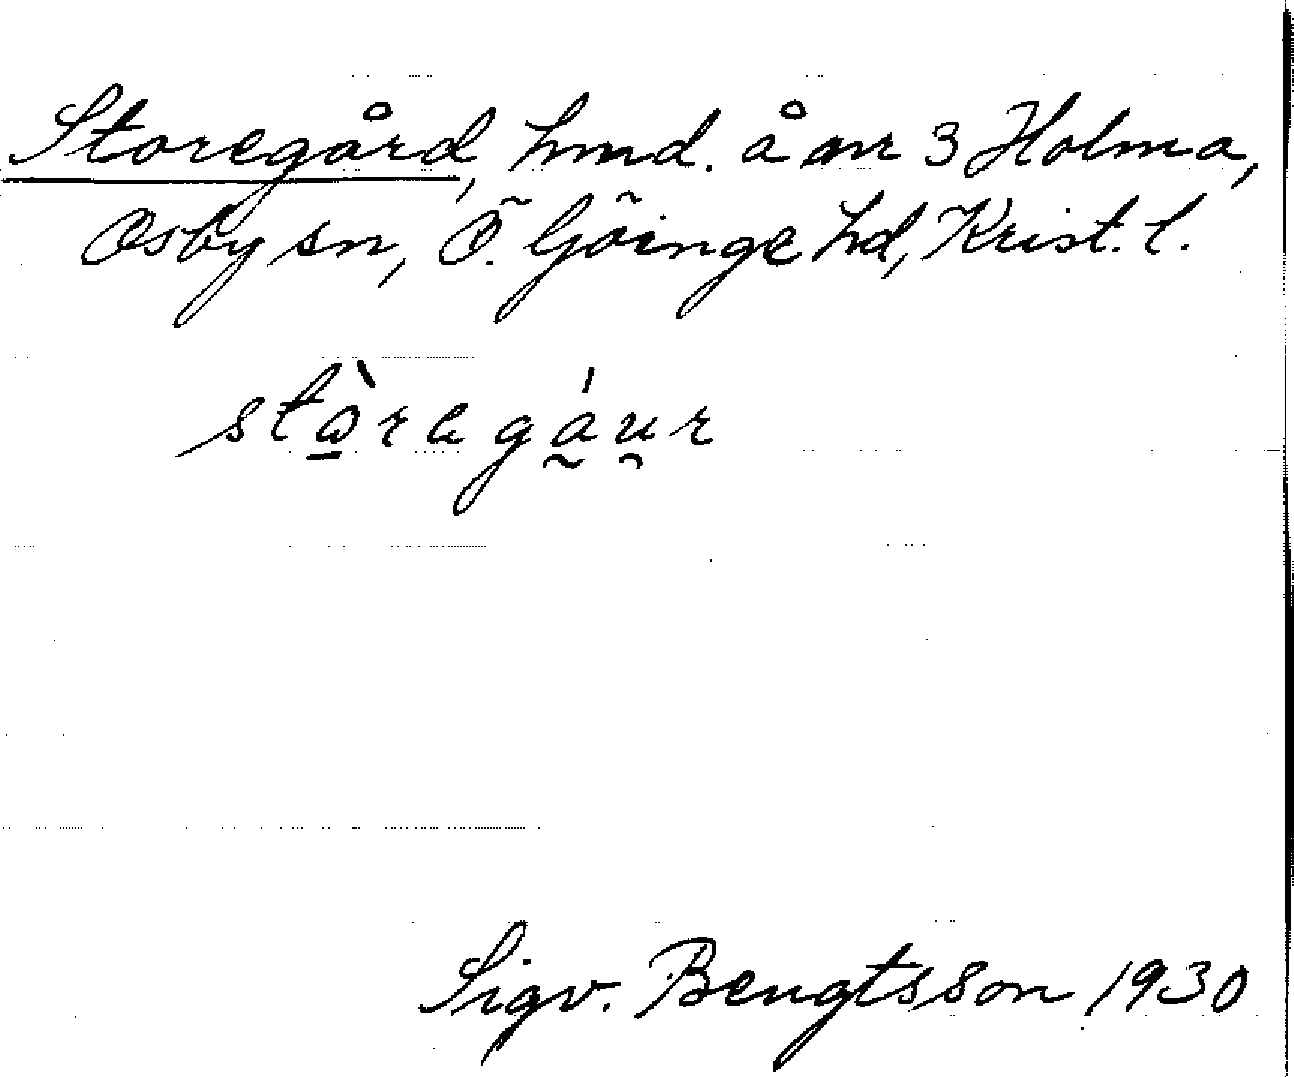 Storegård, hmd. å nr 3 Holma,
Osby sn, Ö. Göinge hd, Krist. l.
stò̱regá̰u̯r
Sigv. Bengtsson 1930